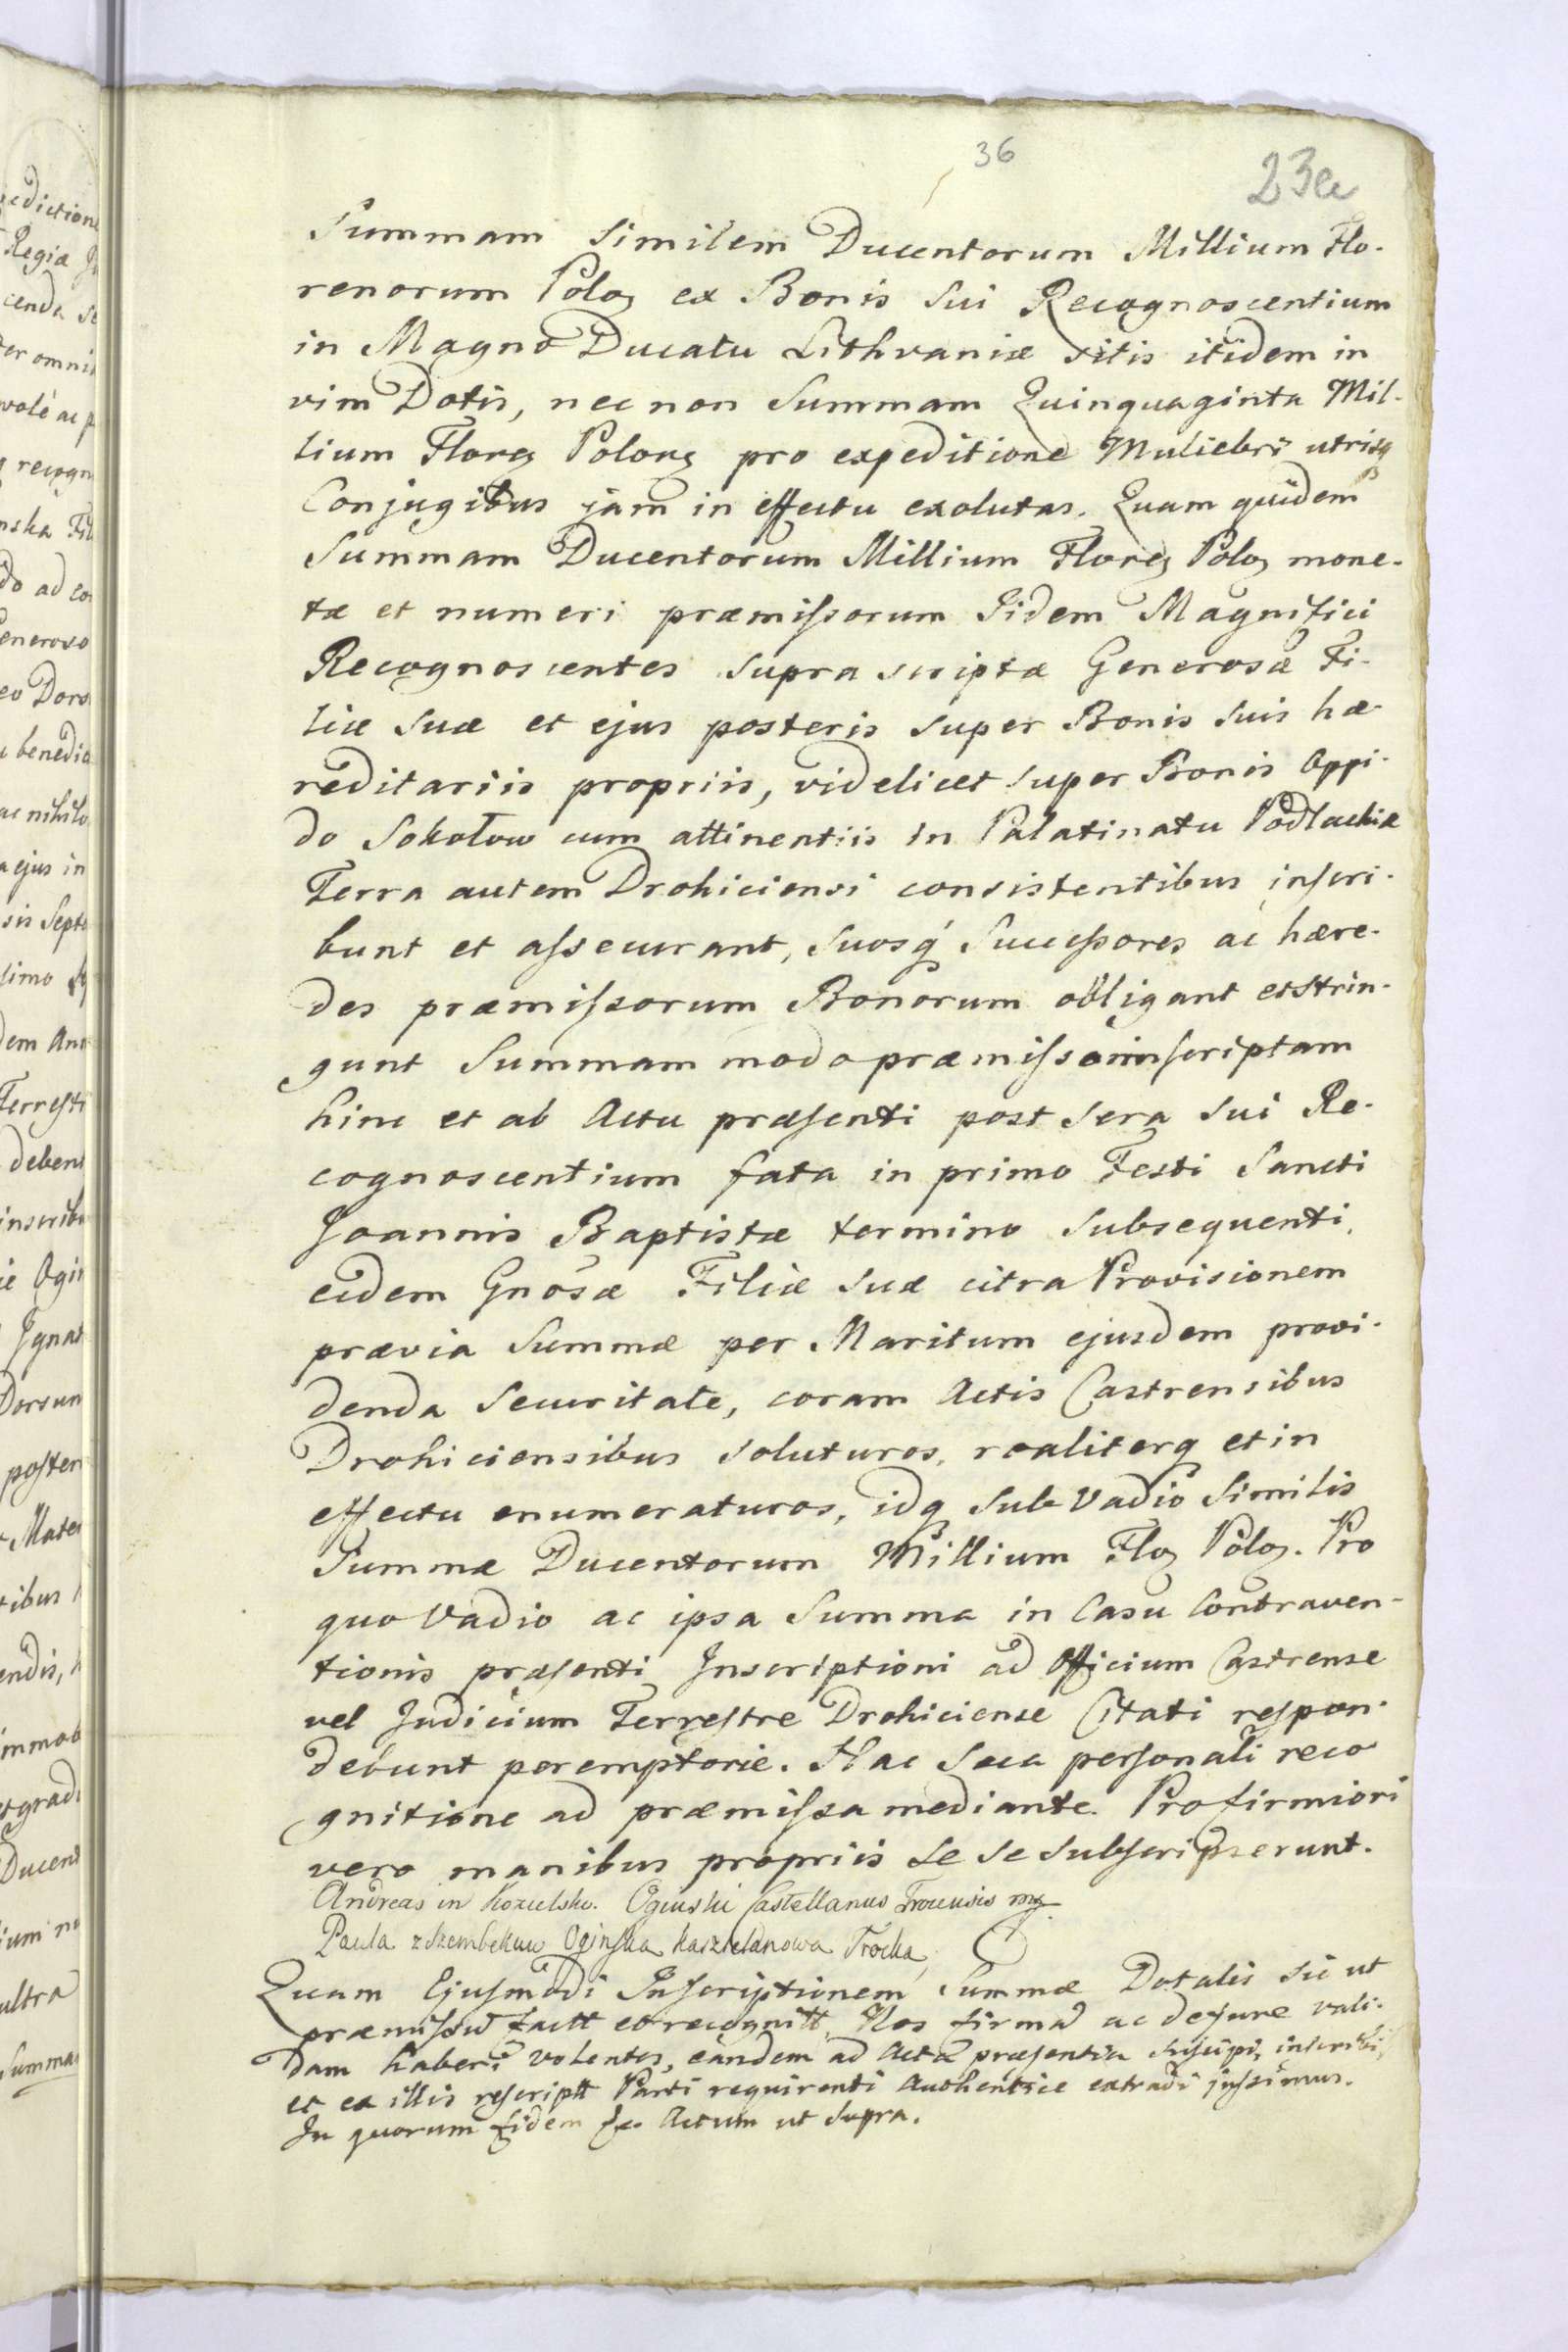 36
23a
Summam Similem Ducentorum Millium Flo-
renorum Polo₃ ex Bonis Sui Recognoscentium
in Magno Ducatu Lithvaniæ sitis itidem in
vim Dotis, nec non Summam Quinquaginta Mil-
lium Flore₃ Polon₃ pro expeditione Muliebri utrisq
Conjugibus jam in effectu exolutas. Quam quidem
Summam Ducentorum Millium Flore₃ Polo₃ mone-
tæ et numeri præmiſsorum Iidem Magnifici
Recognoscentes supra scriptæ Generosæ Fi-
liæ suæ et ejus posteris super Bonis suis hæ-
reditariis propriis, videlicet super Bonis Oppi-
do Sokołow cum attinentiis in Palatinatu Podlachiæ
Terra autem Drohiciensi consistentibus inſcri-
bunt et aſsecurant, suosq́ Succeſsores ac hære-
des præmiſsorum Bonorum obligant et strin-
gunt Summam modo præmiſso inſcriptam
hinc et ab Actu præſenti post sera sui Re-
cognoscentium fata in primo Festi Sancti
Joannis Baptistæ termino subsequenti,
eidem Gnosæ Filiæ suæ citra Provisionem
prævia Summæ per Maritum ejusdem provi-
denda Securitate, coram Actis Castrensibus
Drohiciensibus soluturos, realiterq et in
effectu enumeraturos, idq sub Vadio similis
Summæ Ducentorum Millium Flo₃ Polo₃. Pro
quo Vadio ac ipsa Summa in Casu Contraven-
tionis præſenti Inscriptioni ad Officium Castrense
vel Judicium Terreſtre Drohiciense Citati reſpon-
debunt peremptorie. Hac sua perſonali reco
gnitione ad præmiſsa mediante. Pro firmiori
vero manibus propriis se se subſcripserunt.
Andreas in Kozielsko Oginski Castellanus Trocensis mp
Paula z Szembekuw Oginſka Kasztelanowa Trocka
Quam Ejuſmodi Inſcriptionem Summæ Dotalis sic ut
præmiſsũ factt et recognitt, Nos firmã ac de jure vali-
dam haberi volentes, eandem ad Acta præſentia suſcipi, inſcribi,
et ex illis reſcriptt Parti requirenti Authentice extradi juſsimus.
In quorum fidem &c. Actum ut Supra.